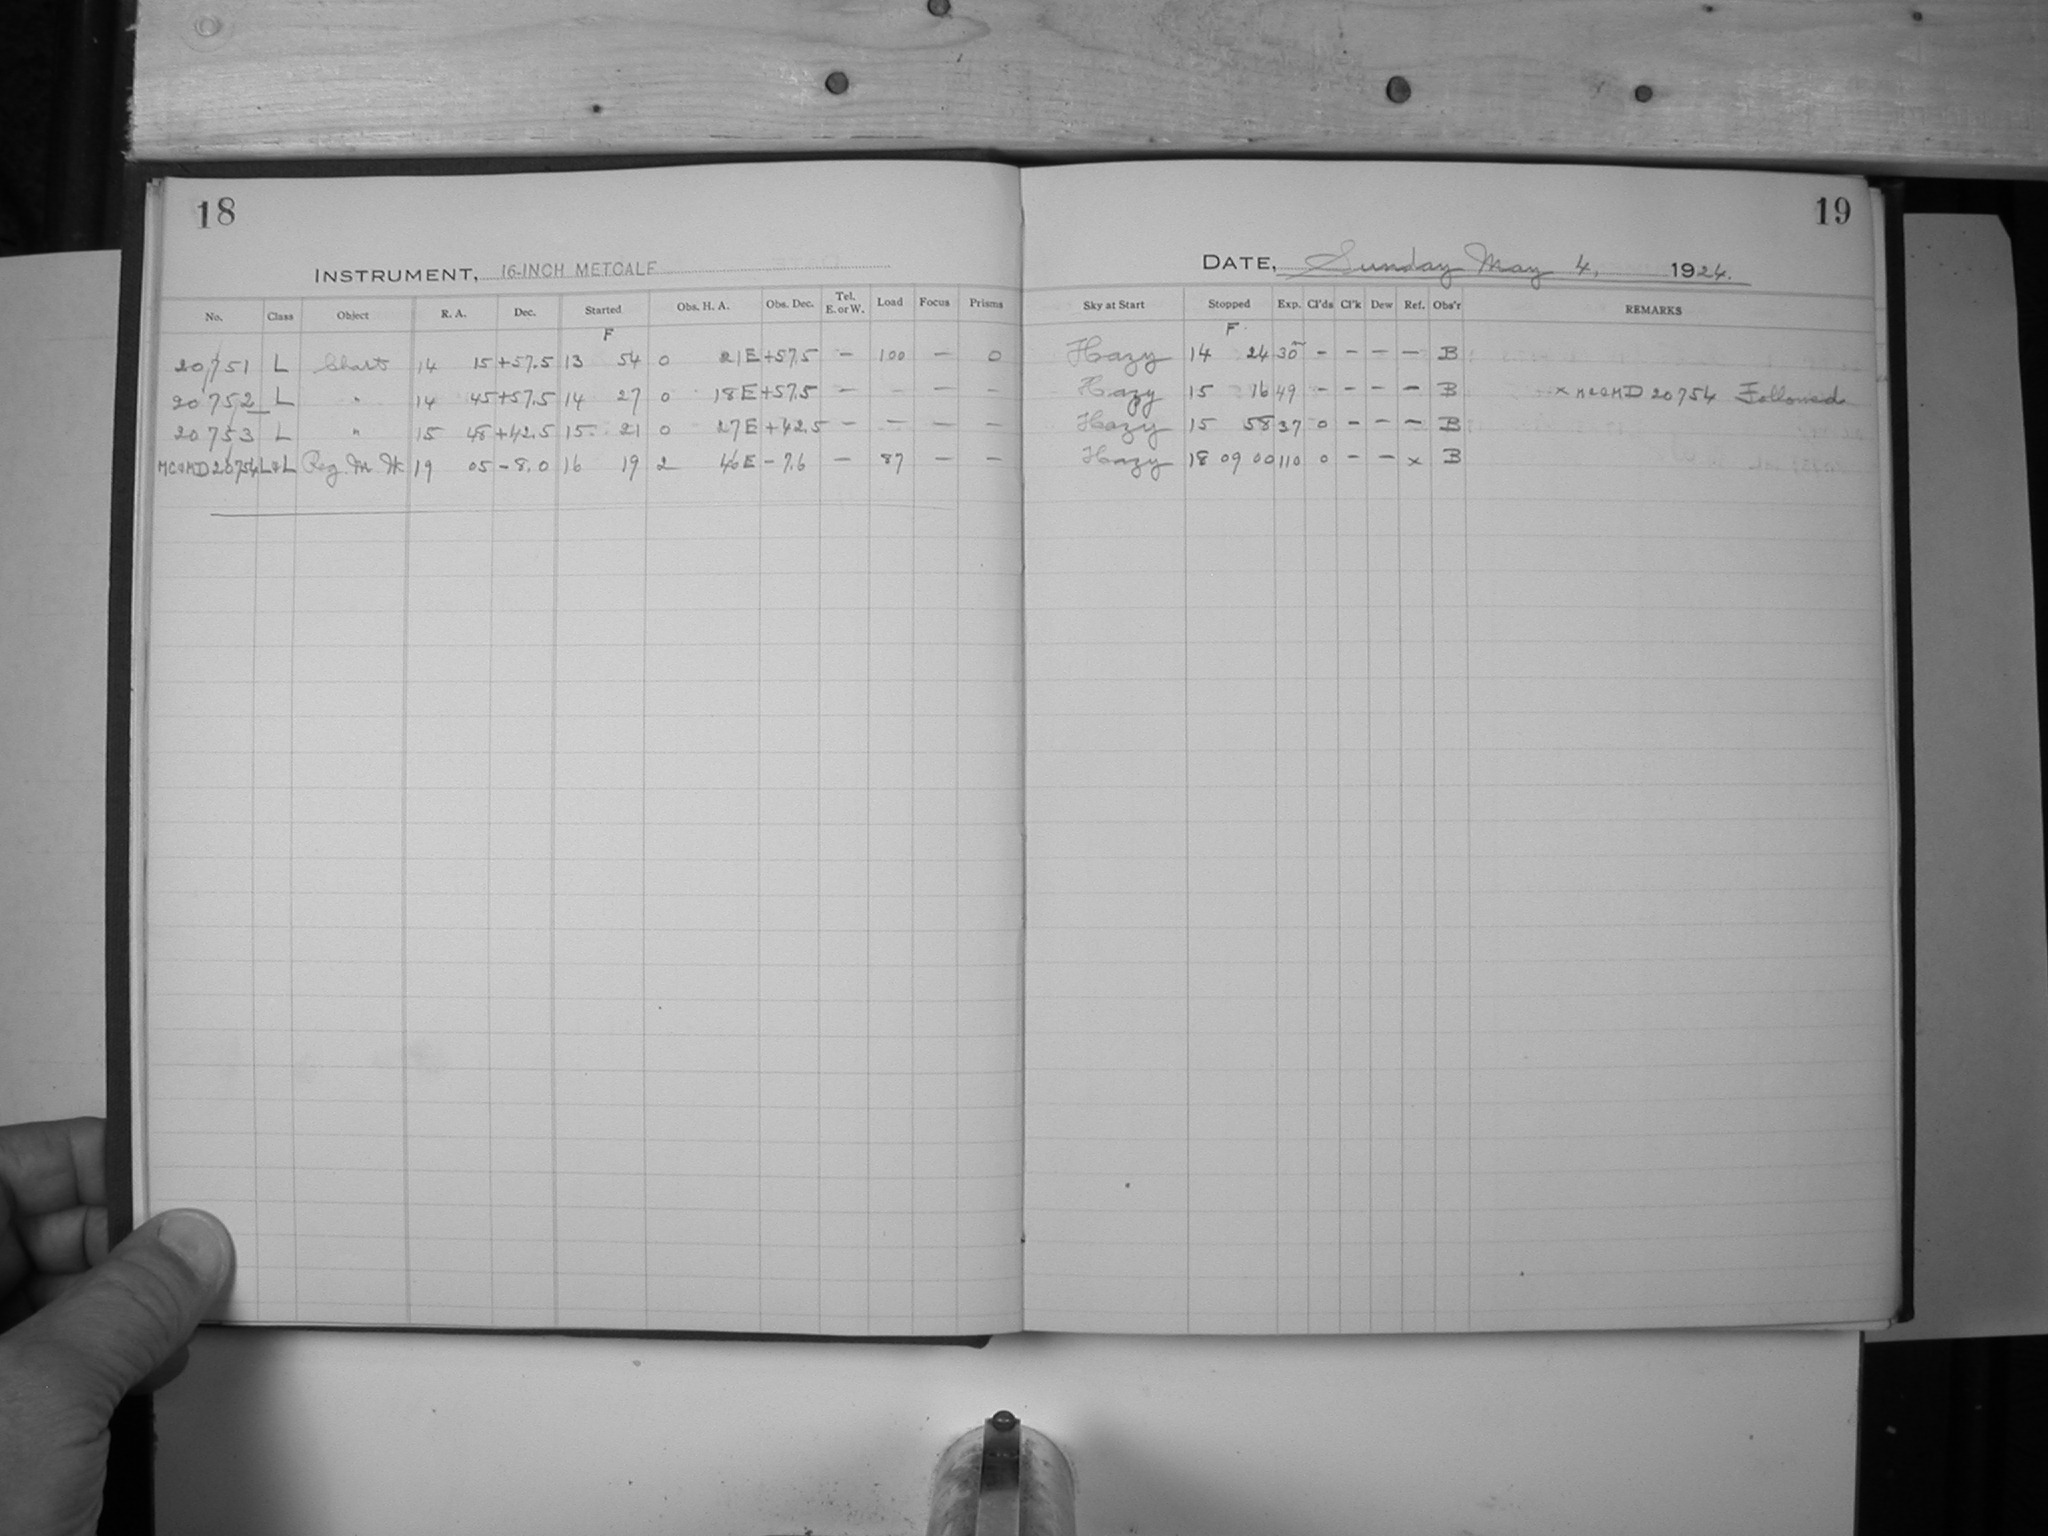 18
INSTRUMENT, 16-INCH METCALF
No. Class Object R. A. Dec. Started Obs. H. A. Obs. Dec. Tel. E. or W. Load Focus Prisms
F
20751 L Chart 14 15 +57.5 13 54 0 21 E +57.5 — 100 — 0
20752 L " 14 45 +57.5 14 27 0 18 E +57.5 — — — —
20753 L " 15 48 +42.5 15 21 0 27 E +42.5 — — — —
MC&MD 20754 L&L Reg. M. W. 19 05 -8.0 16 19 2 46 E -7.6 — 87 — —
19
DATE, Sunday May 4, 1924.
Sky at Start Stopped Exp. Cl'ds Cl'k Dew Ref. Obs'r REMARKS
F
Hazy 14 24 30 — — — — B
Hazy 15 16 49 — — — — B x MC&MD 20754 Followed
Hazy 15 58 37 0 — — — B
Hazy 18 09 00 110 0 — — x B